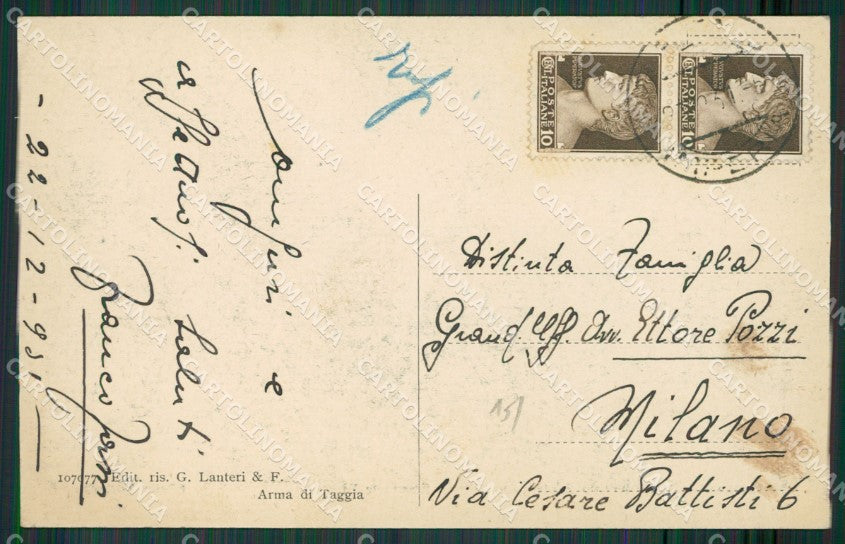 Auguri e
affettuosi saluti
Franco
- 22-12-931
Distinta Famiglia
Grand. Uff. Avv. Ettore Pozzi
Milano
Via Cesare Battisti 6
107077 Edit. ris. G. Lanteri & F.
Arma di Taggia
POSTE
ITALIANE
10
POSTE
ITALIANE
10
151
CARTOLINOMANIA